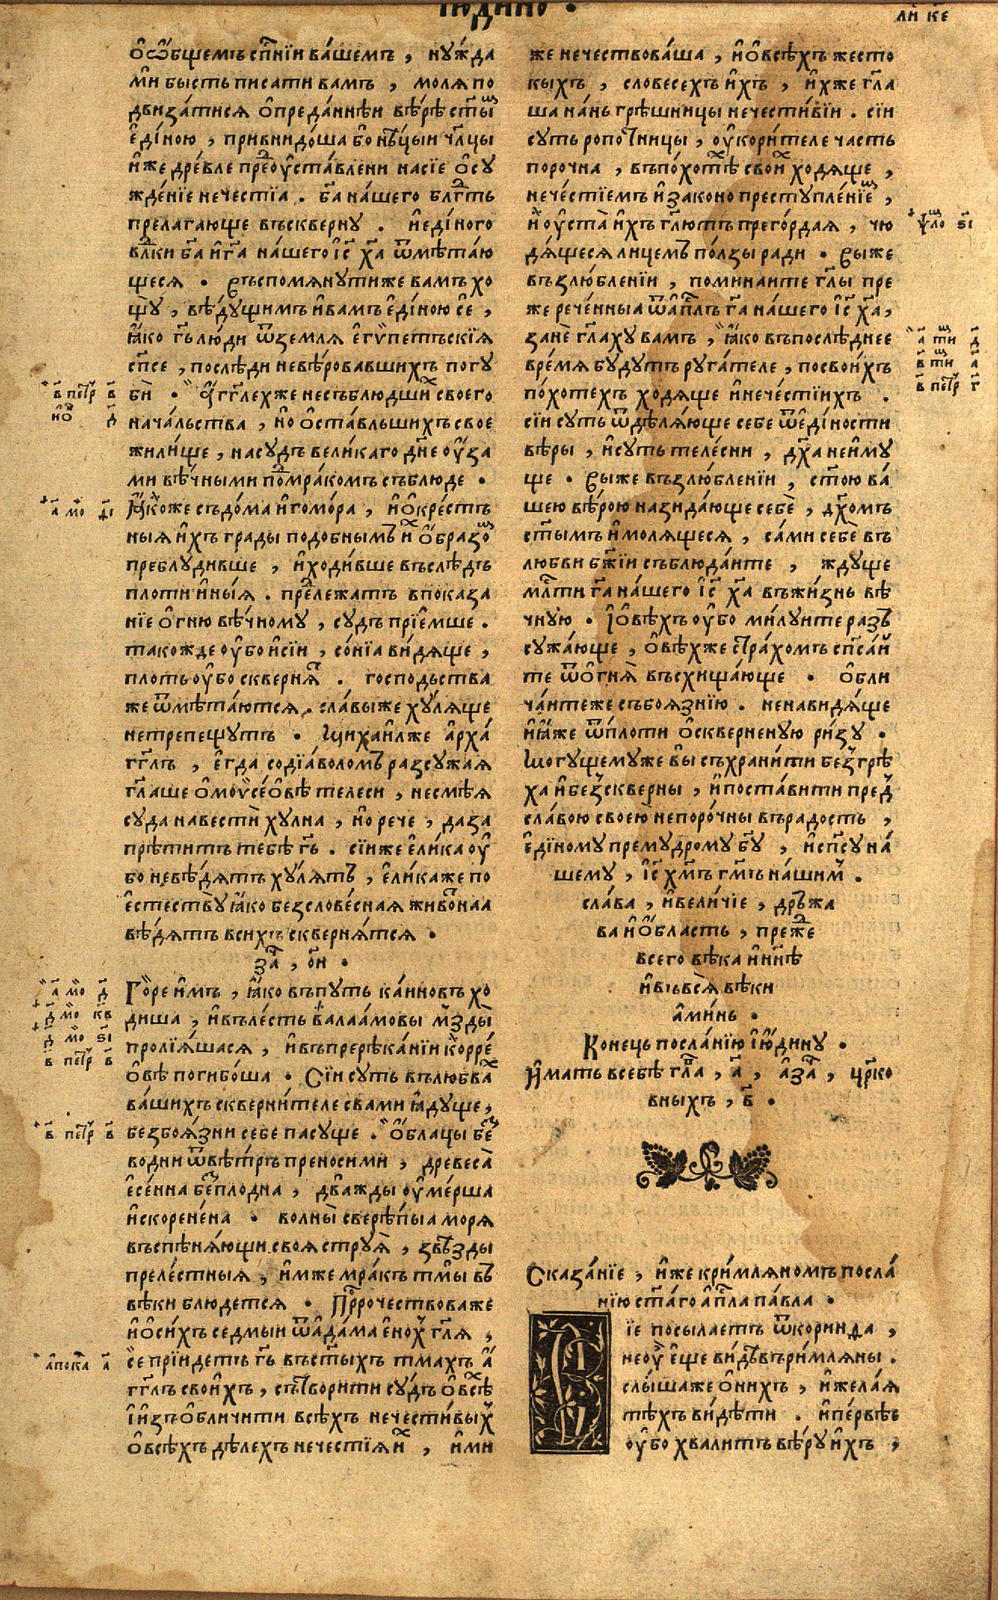 Їюдино .
ли к҃е
ѻ҆ѻ҆́бщемъ сп҃нїи ва́шемъ , нꙋ́жда
ми бысть писати вамъ , моля по
двиза́тися ѻ҆преда́ннѣи вѣ́рѣ ст҃ы
е҆ди́ною , привнидо́ша бо нѣ́цыи чл҃цы
и҆же дре́вле преⷣоу҆ста́влени на сїе ѻ҆сꙋ
жде́нїе нече́стїа . б҃а на́шего блгⷣть
прелагающе въ скве́рнꙋ . и҆ еди́ного
влⷣкꙋ б҃а и҆ г҃а на́шего і҆с҃ х҃а ѿмѣта́ю
щеся . въспомянꙋти же вамъ хо
щꙋ̀ , вѣ́дꙋщимъ и҆ вамъ е҆ди́ною се̂ ,
ꙗ҆́ко г҃ь лю́ди ѿ земля̀ е҆гѵ́петъскїя
сп҃се , послѣди невѣ́ровавшихъ погꙋ
бѝ . а҆́гг҃лех же не съблю́дшиⷯ своего
нача́льства , но ѻ҆ста́вльшихъ свое
жили́ще , на сꙋдъ вели́каго дн҃е оу҆́за
ми вѣ́чными поⷣ мра́комъ съблюде .
Ꙗ҆́коже съдо́ма и҆ гомо́ра , и҆ ѻ҆кре́стъ
ныя и҆́хъ гра́ды подо́бнымъ и҆ⷯ ѻ҆́бразоⷨ
преблꙋди́вше , и҆ ходи́вше въслѣ́дъ
пло́ти и҆ны́я . преⷣлежатъ в показа
нїе ѻ҆гню вѣ́чномꙋ , сꙋдъ прїе́мше .
такожде оу҆́бо и҆ сїи , со́нїа ви́дяще ,
плоть оу҆́бо скверня́тъ . господьства
же ѿмѣта́ются . сла́вы же хꙋ́ляще
не трепе́щꙋтъ . Миха́илже а҆рха́
гг҃лъ , е҆гда̀ со дїа́волом разсꙋжа́я
гл҃аше ѻ҆ мѻѵсе́ѻвѣ телеси , не смѣ́я
сꙋда̀ навестѝ хꙋ́лна , но рече , да за
прѣти́тъ тебѣ г҃ь . сїи же е҆ли́ка оу҆́
бо не вѣ́дятъ хꙋ́лятъ , е҆ли́ка же по
е҆стествꙋ̀ ꙗ҆́ко безслове́сная живѻ҆́наа
вѣ́дятъ в си́хъ скверня́тся .
заⷱ , о҃и .
Го́ре и҆мъ , ꙗ҆́ко въ пꙋть ка́иновъ хо
диша , и҆ въ ле́сть вала́амовы мъзды̀
пролїя́шася , и҆ въ прерѣка́нїи корре́
ѻ҆вѣ погибо́ша . Сїи сꙋть въ любваⷯ
ва́шихъ скверни́теле с ва́ми ꙗ҆дꙋще ,
без боя́зни себе пасꙋще . ѻ҆́блацы беⷥ
водни ѿ вѣ́тръ преносими , древеса̀
е҆се́нна беспло́дна , два́жды оу҆ме́рша
и҆скорене́на . во́лны свѣрѣ́пыа моря
въспѣня́ющи своя̀ стрꙋя̀ , звѣ́зды
преле́стныя , и҆́мже мра́къ тмы въ
вѣки блюде́тся . Пррⷪчествоваже
и҆ ѻ҆ си́хъ седмы́и ѿ а҆да́ма е҆но́х гл҃я ,
се прїи́детъ г҃ь въ ст҃ыхъ тма́хъ а҆́
гг҃лъ свои́хъ , сътвори́ти сꙋ́дъ ѻ҆ всѣⷯ
і҆ и҆зъѻ҆бличи́ти всѣ́хъ нечести́выⷯ
ѻ҆ всѣ́хъ дѣ́лехъ нече́стїя и҆ⷯ , и҆́ми
в҃ петр҇ в҃
и҆ѻ҃ д҃
а҃ мо҇ д҃і
а҃ мо҇ д҃
д҃ мо҇ к҃в
д҃ мо҇ ѕ҃і
в҃ петр҇ в҃
в҃ петр҇ в҃
а҆пока҇ а҃
же нече́ствоваша , и҆ ѻ҆ всѣ́хъ жесто
кыхъ , словесехъ и҆́хъ , и҆́хже гл҃а
ша на́нь грѣ́шницы нечести́вїи . сїи
сꙋть ропо́тницы , оу҆кори́теле ча́сть
поро́чна , въ по́хотеⷯ свои́ⷯ хо́дяще ,
нече́стїемъ и҆ законопрестꙋпле́нїеⷨ ,
и҆ оу҆ста̀ и҆́хъ гл҃ютъ прего́рдая , чю
дя́щеся лицемъ по́лзы ради . Вы же
възлю́бленїи , помина́ите гл҃ы пре
же рече́нныа ѿ а҆пⷭлъ г҃а нашего і҆с҃ х҃а ,
занѐ гл҃ахꙋ вамъ , ꙗ҆́ко въ послѣ́днее
вре́мя бꙋ́дꙋтъ рꙋга́теле , по свои́хъ
по́хотехъ ходяще и҆ нече́стїихъ .
сїи сꙋть ѿдѣля́юще себе ѿ е҆ди́ности
вѣ́ры , и҆ сꙋть теле́сни , дх҃а не и҆мꙋ
ще . Вы же възлю́бленїи , ст҃ою ва́
шею вѣ́рою назида́юще себѐ , дх҃омъ
ст҃ымъ и҆ моля́щеся , са́ми себѐ въ
любви бж҃їи съблюда́ите , ждꙋще
млⷭти г҃а на́шего і҆с҃ х҃а въ жи́знь вѣ́
чнꙋю . І҆ ѻ҆вѣхъ оу҆́бо ми́лꙋите разъ
сꙋжа́юще , ѻ҆вѣ́хже стра́хомъ сп҃са́и
те ѿ ѻ҆гня̀ въсхища́юще . ѻ҆бли
ча́ите же съ боя́знїю . ненави́дяще
и҆ ꙗ҆́же ѿ пло́ти ѻ҆скверненꙋю ри́зꙋ .
Могꙋщемꙋже вы съхрани́ти без грѣ
ха́ и҆ без скве́рны , и҆ поста́вити преⷣ
сла́вою своею непоро́чны въ ра́дость ,
е҆ди́номꙋ премꙋ́дромꙋ б҃ꙋ , и҆ сп҃сꙋ на́
шемꙋ , і҆с҃ х҃мъ г҃мъ на́шим .
сла́ва , и҆ вели́чїе , дръ́жа
ва и҆ ѻ҆́бласть , преⷤе
всего вѣка и҆ нн҃ѣ
и҆ въ вся̀ вѣ́ки
а҆ми́нь .
Коне́ць посла́нїю і҆ю́динꙋ .
И҆мать в себѣ гл҃а , а҃ , а҆ заⷱ , цр҃ко
вныхъ , в҃ .
ѱло ѕ҃і
а҃ ти д҃
в҃ ти а҃
в҃ петр҇ г҃
Сказа́нїе , и҆́же кри́мляномъ посла́
нїю ст҃а́го а҆пⷭла па́вла .
Сїе посыла́етъ ѿ кори́нѳа ,
не оу҆̀ е҆ще ви́дѣвъ ри́мляны .
слы́шаже ѻ҆ ни́хъ , и҆ жела́я
тѣ́хъ ви́дѣти . и҆ пе́рвѣе
оу҆́бо хва́литъ вѣ́рꙋ и҆́хъ ,